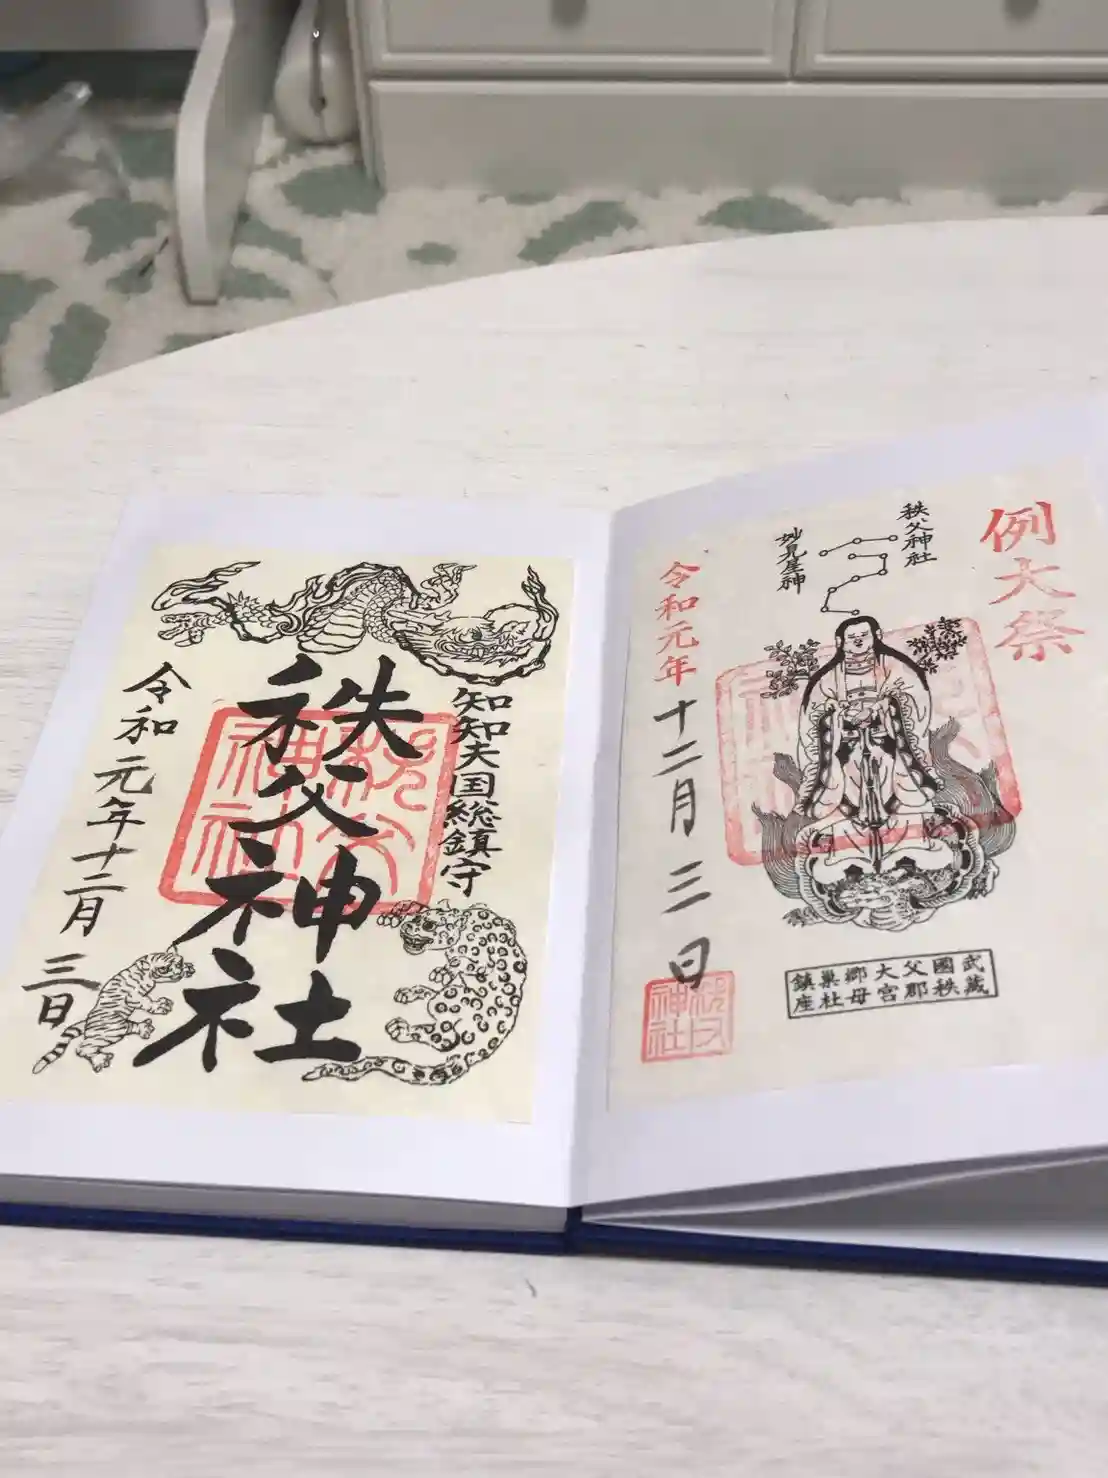 例大祭
秩父神社
妙見星神
秩父神社
武藏國秩父郡大宮郷母巣社鎮座
令和元年
十二月三日
秩父神社
知知夫国総鎮守
秩父神社
秩父神社
令和元年十二月三日